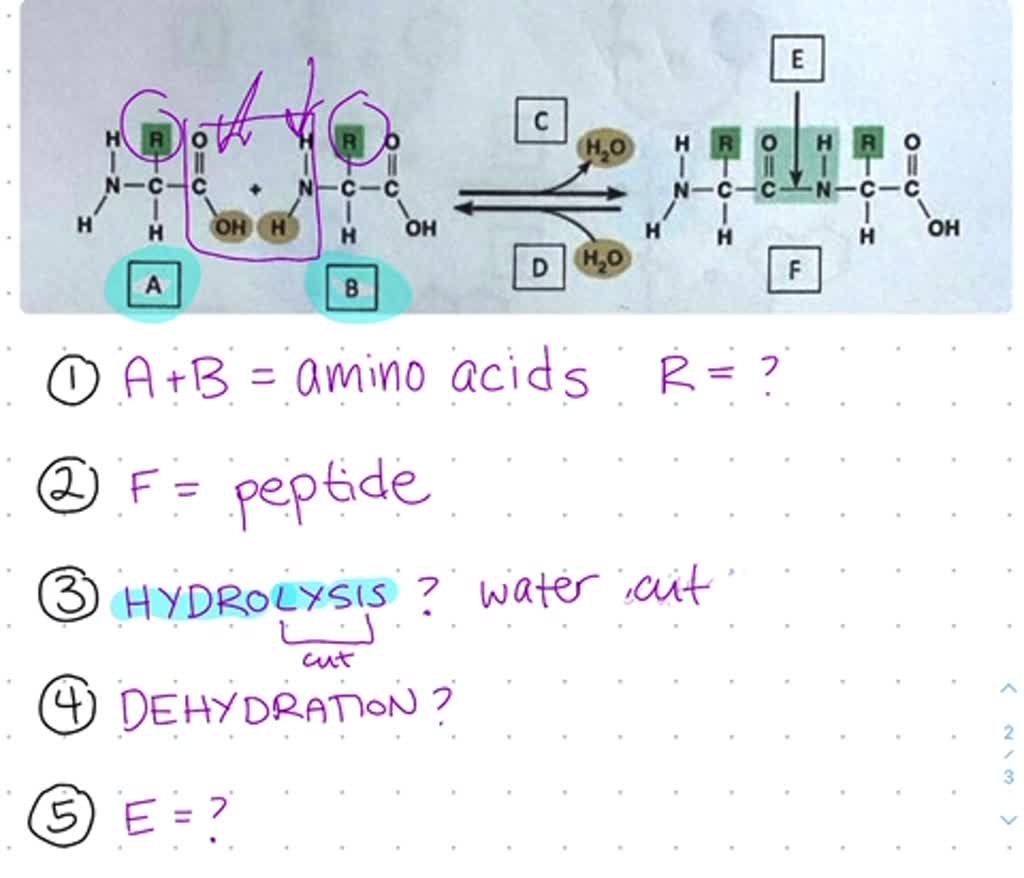 E
C
H R O H R O H₂O H R O H R O
N—C—C + N—C—C N—C—C—N—C—C
H H OH H H OH H H H OH
A B D H₂O F
① A+B = amino acids R = ?
② F = peptide
③ HYDROLYSIS ? water cut
cut
④ DEHYDRATION ?
⑤ E = ?
2
/
3